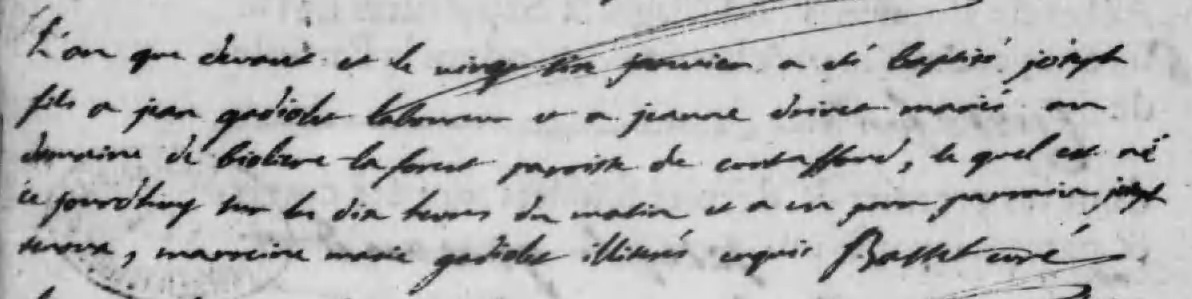 L'an que devant et le vingt six janvier a été baptisé joseph
fils a jean gadiolet laboureur et a jeanne drivet mariés au
domaine de la forest parroisse de contaffond, le quel est né
ce jourdhuy sur les dix heures du matin et a eu pour parrain joseph
marreine marie gadiolet illitérés enquis Basset curé